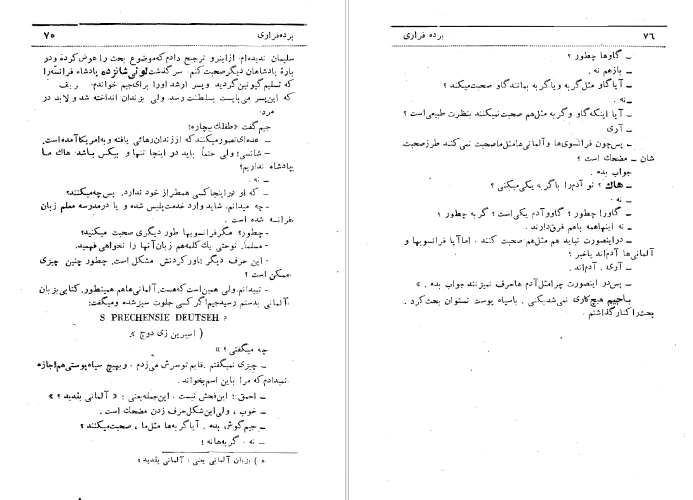 برده فراری ۷۵
سلیمان ندیده‌ام. ازاینرو ترجیح دادم که موضوع بحث را عوض کرده و در
بارهٔ پادشاهان دیگر صحبت کنم. سرگذشت لوئی شانزده پادشاه فرانسه را
که تسلیم گیوتین گردید و پسر ارشد اورا برای جیم خواندم.
که این پسر می‌بایست بسلطنت رسد ولی بزندان انداخته شد و لابد در
مرد.
جیم گفت «طفلک بیچاره؛
ـ عده‌ای تصور میکنند که از زندان رهائی یافته و به امریکا آمده است.
ـ شانسی! ولی حتماً باید در اینجا تنها و بیکس باشد هاك ما
پادشاه نداریم؟
ـ نه.
ـ که او در اینجا کسی همطراز خود ندارد. پس چه میکنند؟
ـ چه میدانم. شاید وارد خدمت پلیس شده و یا در مدرسه معلم زبان
فرانسه شده است.
ـ چطور؟ مگر فرانسویها طور دیگری صحبت میکنید؟
ـ مسلما. توحتی یك کلمه هم زبان آنها را نخواهی فهمید.
ـ این حرف دیگر باور کردنش مشکل است. چطور چنین چیزی
ممکن است؟
ـ نمیدانم ولی همین است که هست. آلمانی‌ها هم همینطور. کتابی بزبان
آلمانی بدستم رسید جیم اگر کسی جلوت سبز شده و میگفت:
S PRECHENSIE DEUTSEH ?
( اسپرین زی دوچ ).
چه میگفتی؟ »
ـ چیزی نمیگفتم. قایم توسرش می‌زدم. و بهیچ سیاه پوستی هم اجازه
نمیدادم که مرا باین اسم بخواند.
ـ احمق! این فحش نیست. این جمله یعنی: « آلمانی بلدید؟ »
ـ خوب، ولی این شکل حرف زدن مضحك است.
ـ جیم گوش بده. آیا گربه‌ها مثل ما، صحبت میکنند؟
ـ نه. گربه‌ها نه!
* ) بزبان آلمانی یعنی: آلمانی بلدید؛
۷۶ برده فراری
ـ گاوها چطور؟
ـ بازهم نه.
ـ آیا گاو مثل گربه ویا گربه بمانند گاو صحبت میکند؟
ـ نه.
ـ آیا اینکه گاو و گربه مثل هم صحبت نمیکنند بنظرت طبیعی است؟
ـ آری
ـ پس چون فرانسوی‌ها و آلمانی‌ها مثل ما صحبت نمی کنند طرز صحبت
شان ـ مضحك است؟
جواب بده.
ـ هاك؟ تو آدم را با گربه یکی میکنی؟
ـ نه.
ـ گاو را چطور؟ گاو و آدم یکی است؟ گربه چطور؟
ـ نه اینها همه باهم فرق دارند.
ـ در اینصورت نباید هم مثل هم صحبت کنند. اما آیا فرانسویها و
آلمانی‌ها آدم‌اند یاخیر؟
ـ آری. آدم‌اند.
ـ پس در اینصورت چرا مثل آدم‌ها حرف نمیزنند جواب بده. »
با جیم هیچ کاری نمی‌شد بکنی. با سیاه پوست نمیتوان بحث کرد.
بحث را کنار گذاشتم.